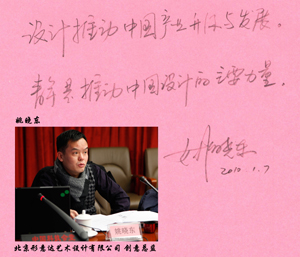 设计推动中国产业升级与发展。
推动中国设计的主要力量。
姚晓东
姚晓东
姚晓东
2010.1.7
北京形意达艺术设计有限公司 创意总监